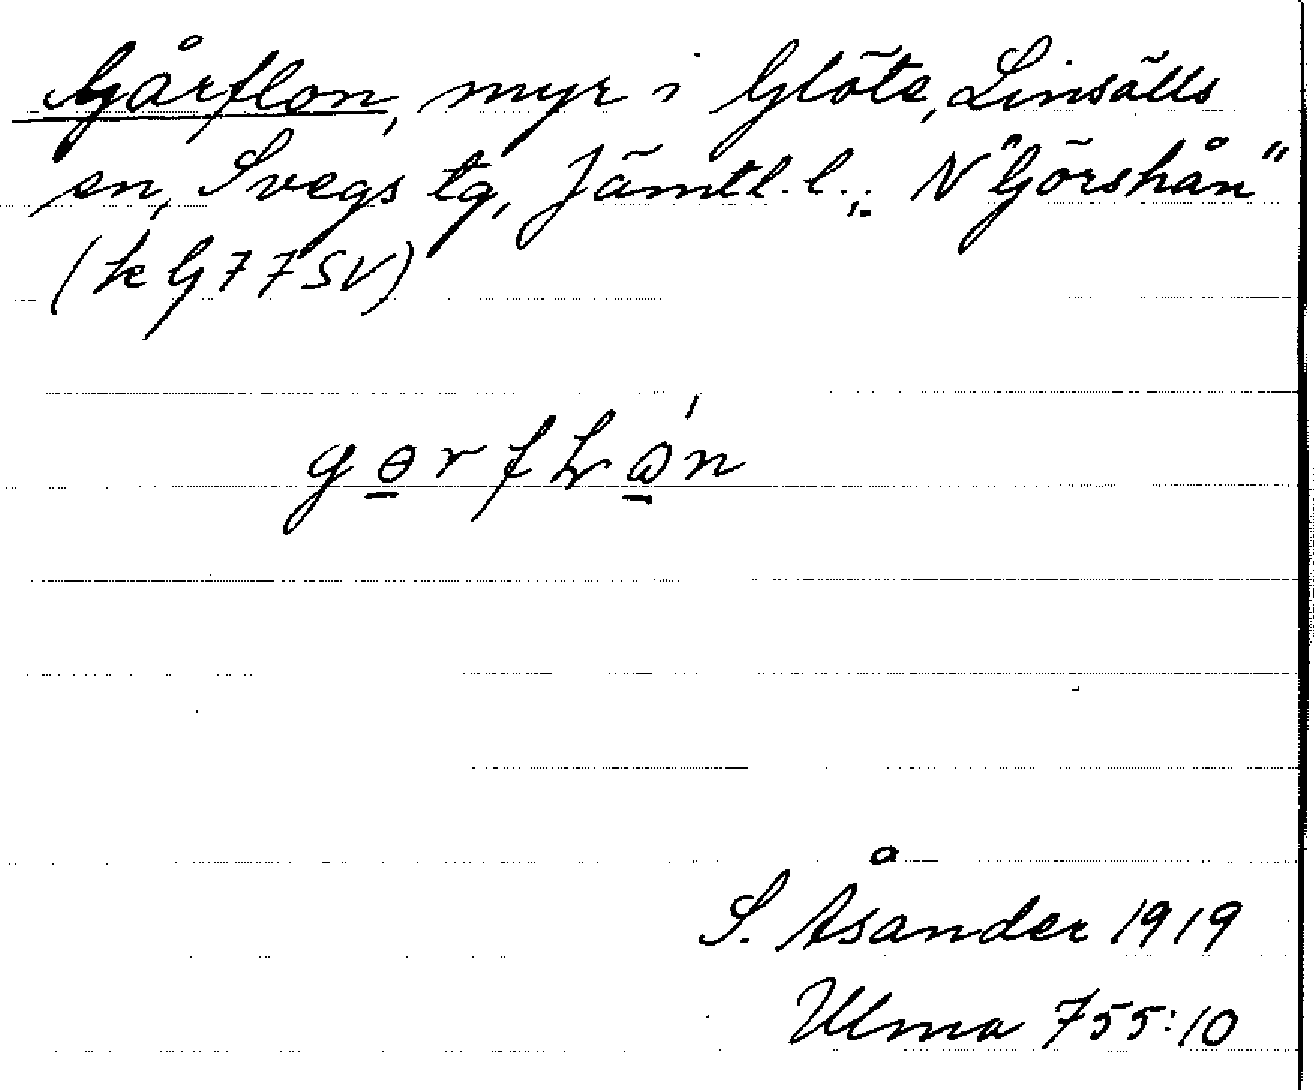 Gårflon, myr i Glöte, Linsälls
sn, Svegs tg, Jämtl. l.; N "Görshån"
(k G 77 SV)
gɵrfLɷ́n
S. Åsander 1919
Ulma 755:10